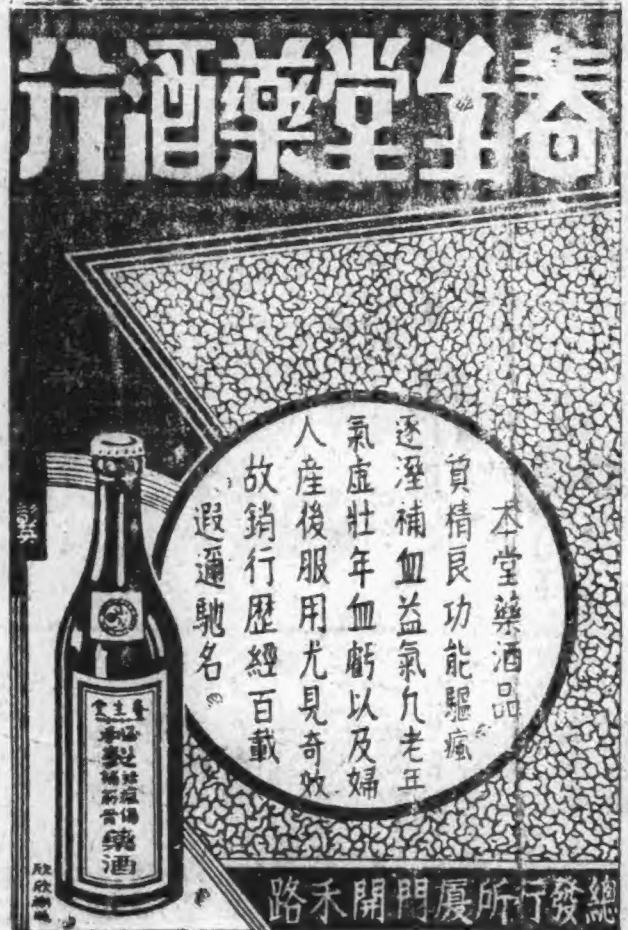 春生堂藥酒行
本堂藥酒品
質精良功能驅瘋
逐溼補血益氣凢老年
氣虛壯年血虧以及婦
人產後服用尤見奇效
故銷行歷經百載
遐邇馳名。
春生堂
製
藥酒
總發行所廈門開禾路